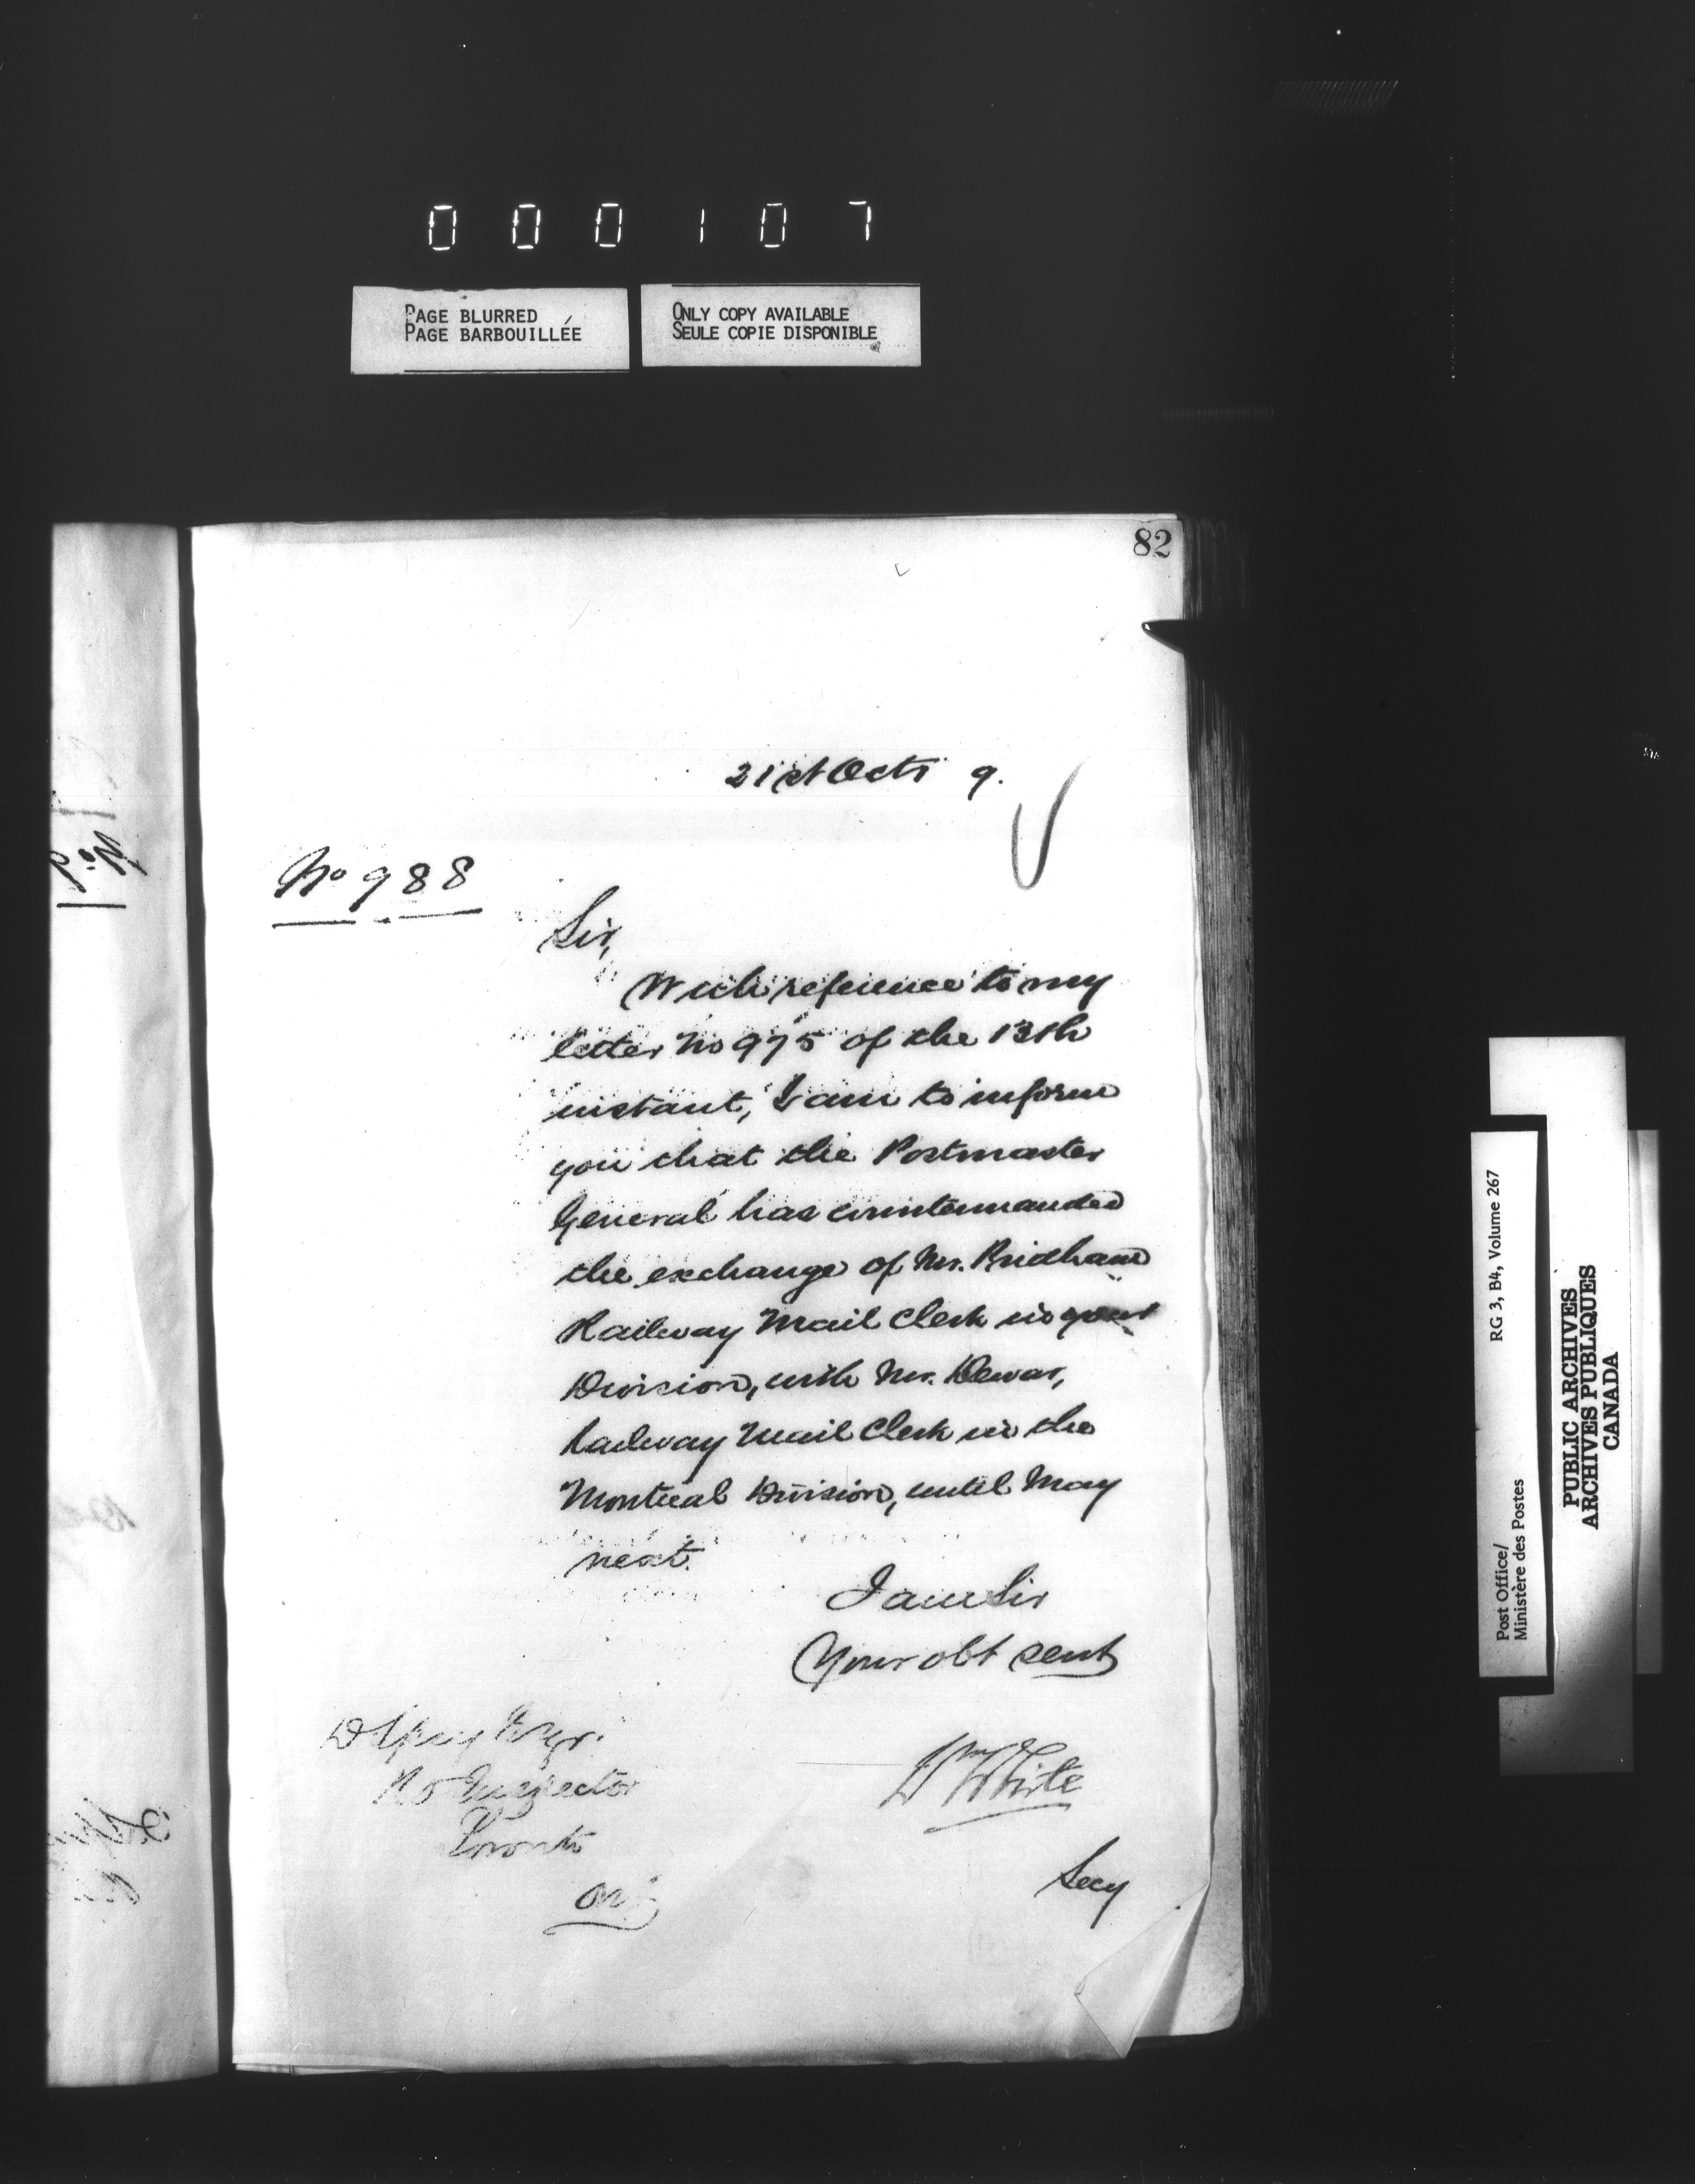 0 0 0 1 0 7
PAGE BLURRED
PAGE BARBOUILLÉE
ONLY COPY AVAILABLE
SEULE COPIE DISPONIBLE
82
21st Oct 9.
No 988
Sir,
With reference to my
letter No 975 of the 13th
instant, I am to inform
you that the Postmaster
General has countermanded
the exchange of Mr. Pridham
Railway Mail Clerk in your
Division, with Mr. Dewar,
Railway Mail Clerk in the
Montreal Division, until May
next.
I am Sir
Your obt servt
Wm White
Secy
D Spry Esqr.
P O Inspector
Toronto
On
RG 3, B4, Volume 267
Post Office/
Ministère des Postes
PUBLIC ARCHIVES
ARCHIVES PUBLIQUES
CANADA